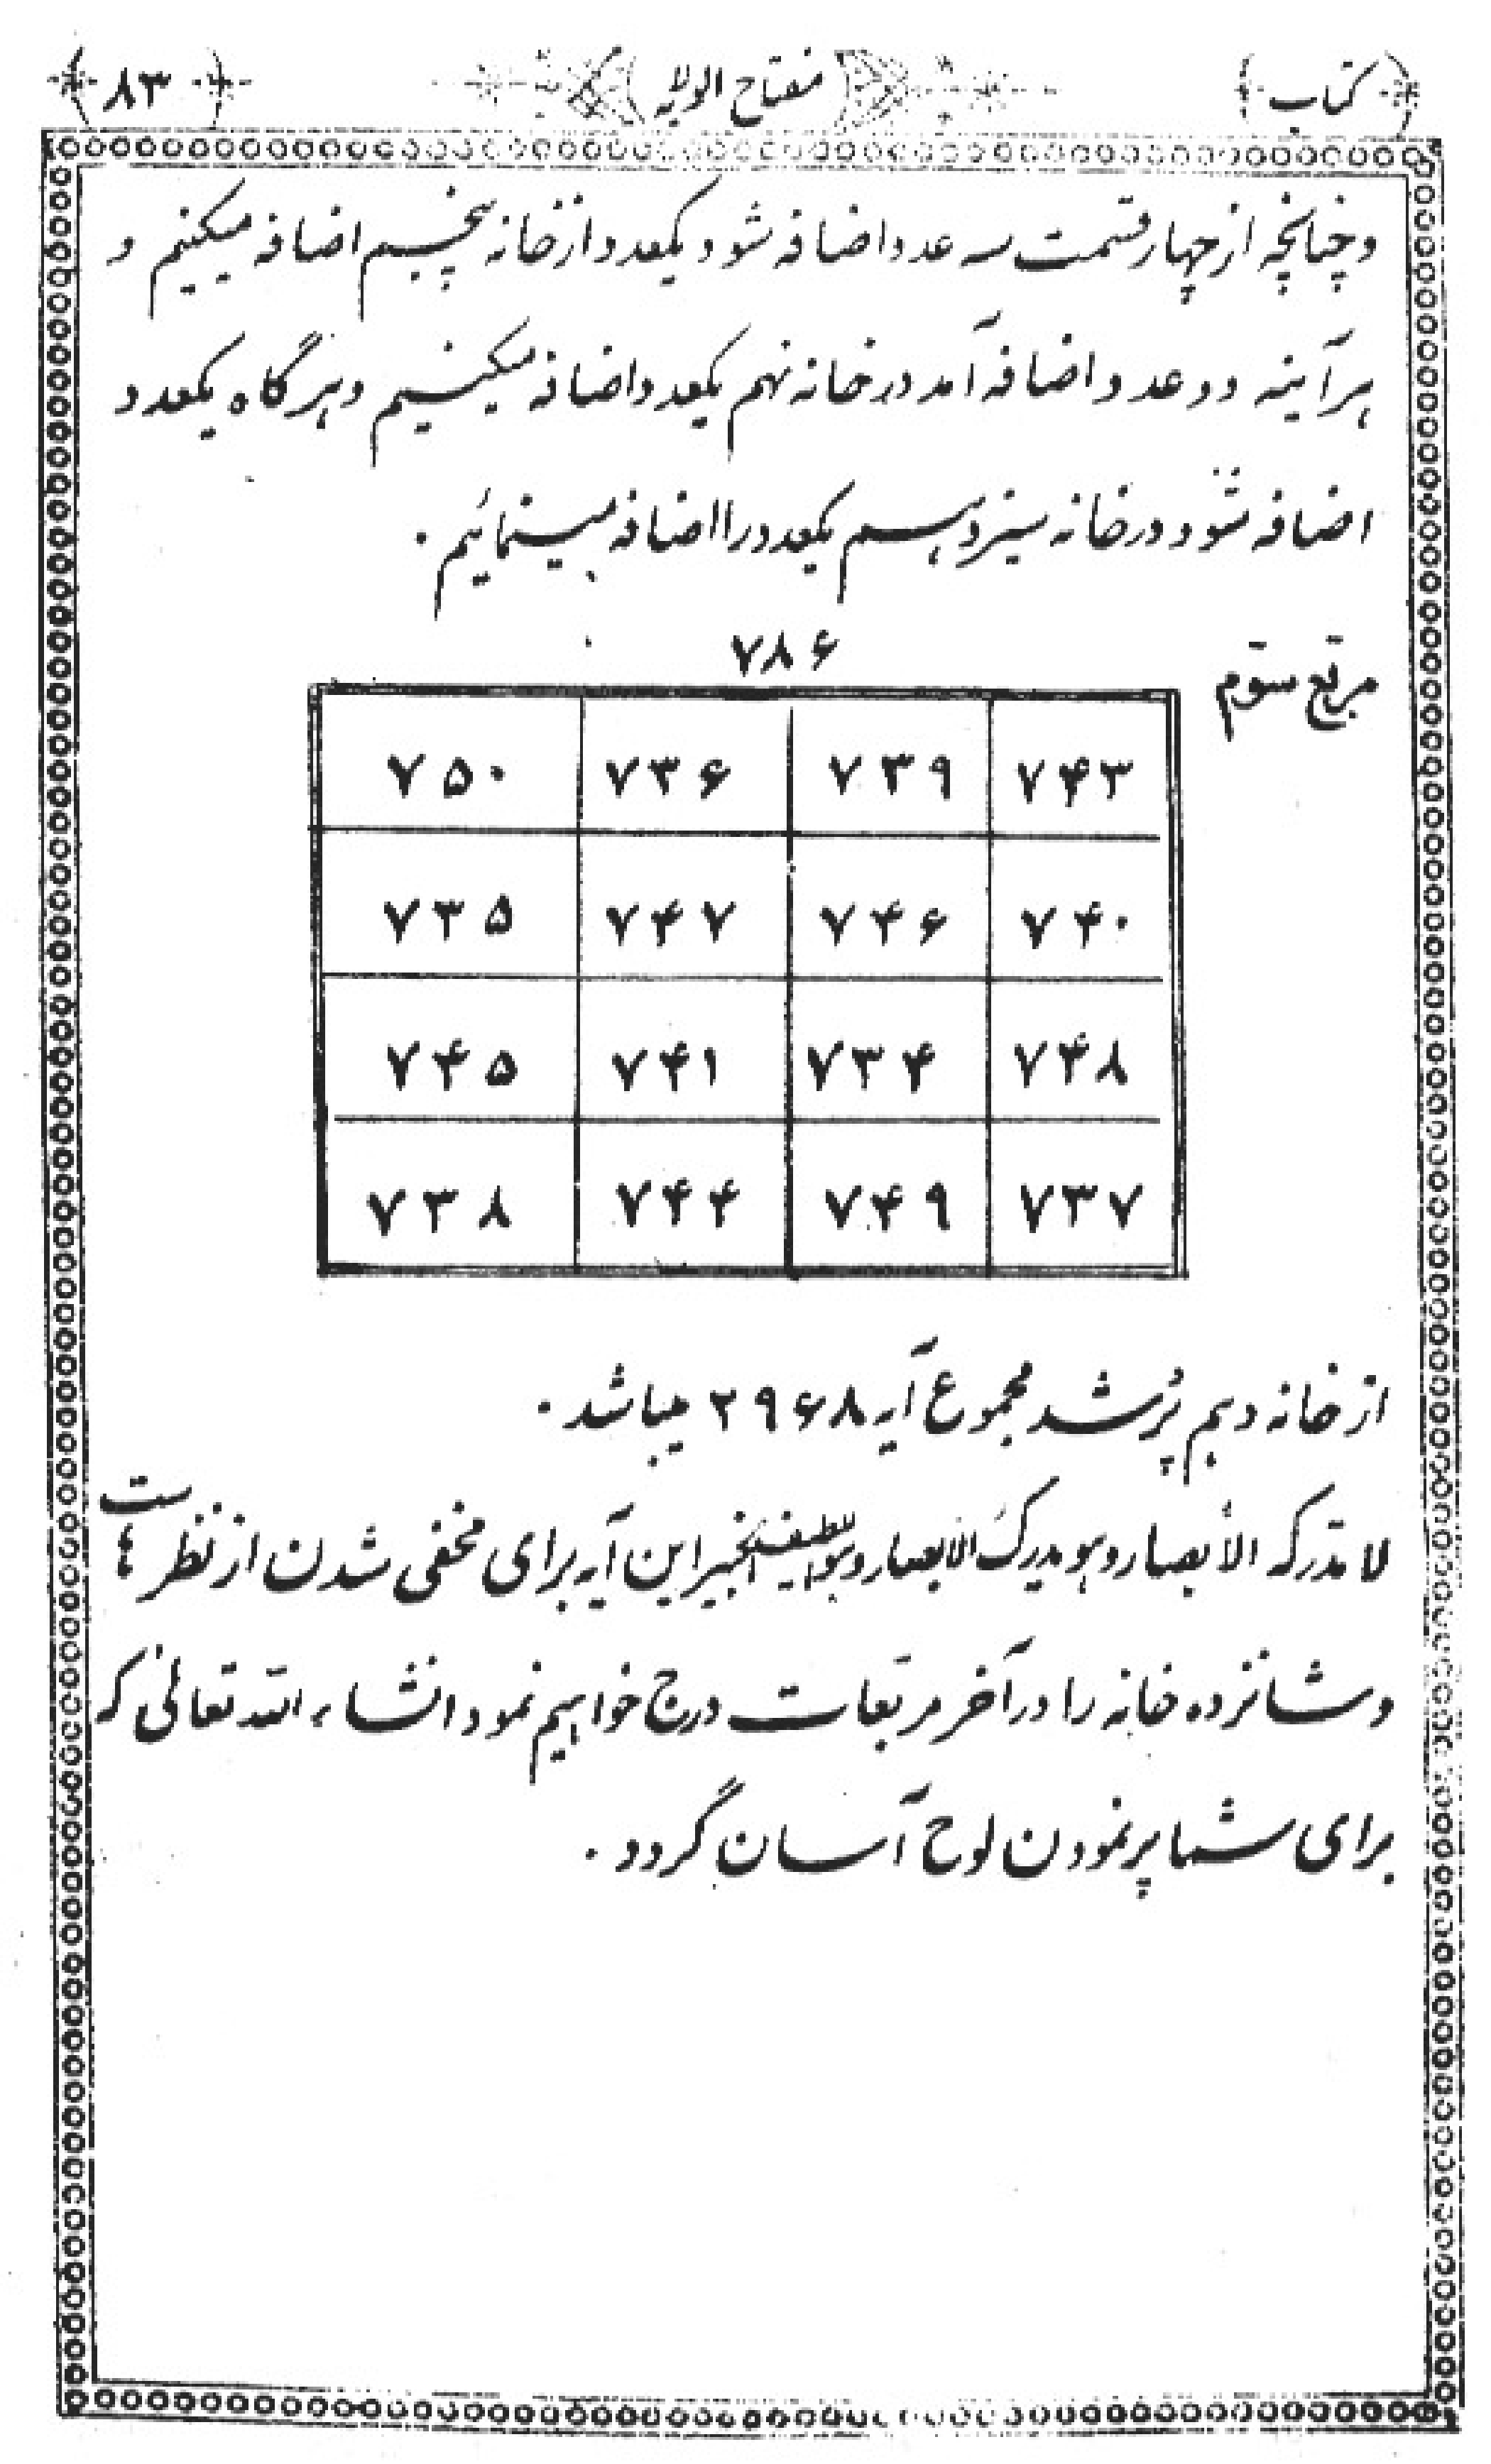 کتاب مفتاح الولایه ۸۳
و چنانچه از چهار قسمت سه عدد اضافه شود یکعدد از خانه پنجم اضافه میکنیم و
هرآینه دو عدد اضافه آمد در خانه نهم یکعدد اضافه میکنیم و هرگاه یکعدد
اضافه شود در خانه سیزدهم یکعدد را اضافه مینمائیم .
۷۸۶
مربّع سوّم
۷۵۰ ۷۳۶ ۷۳۹ ۷۴۳
۷۳۵ ۷۴۷ ۷۴۶ ۷۴۰
۷۴۵ ۷۴۱ ۷۳۴ ۷۴۸
۷۳۸ ۷۴۴ ۷۴۹ ۷۳۷
از خانه دهم پُر شد مجموع آیه ۲۹۶۸ میباشد .
لا تدرکه الأبصار و هو یدرک الابصار و هو اللطیف الخبیر این آیه برای مخفی شدن از نظر هاست
و شانزده خانه را در آخر مربّعات درج خواهیم نمود انشاء الله تعالی که
برای شما پر نمودن لوح آسان گردد .